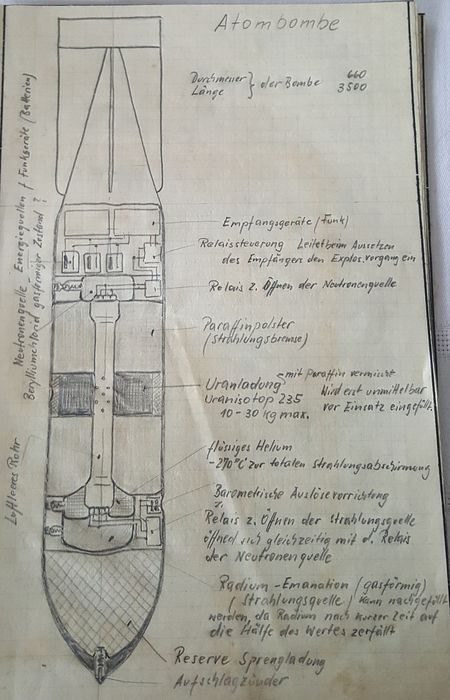 Atombombe
Durchmesser } der Bombe 660
Länge 3500
Neutronenquelle Energiequellen f. Funkgeräte (Batterien)
Berylliumchlorid gasförmiger Zustand ?
Empfangsgeräte (Funk)
Relaissteuerung Leitet beim Aussetzen
des Empfängers den Explos.vorgang ein
Relais z. Öffnen der Neutronenquelle
Paraffinpolster
(Strahlungsbremse)
Uranladung mit Paraffin vermischt
Uranisotop 235 Wird erst unmittelbar
10-30 kg max. vor Einsatz eingefüllt.
flüssiges Helium
-270°C zur totalen Strahlungsabschirmung
Luftleeres Rohr
Barometrische Auslösevorrichtung
Relais z. Öffnen der Strahlungsquelle
öffned sich gleichzeitig mit d. Relais
der Neutronenquelle
Radium-Emanation (gasförmig)
(Strahlungsquelle) kann nachgefüllt
werden, da Radium nach kurzer Zeit auf
die Hälfte des Wertes zerfällt
Reserve Sprengladung
Aufschlagzünder